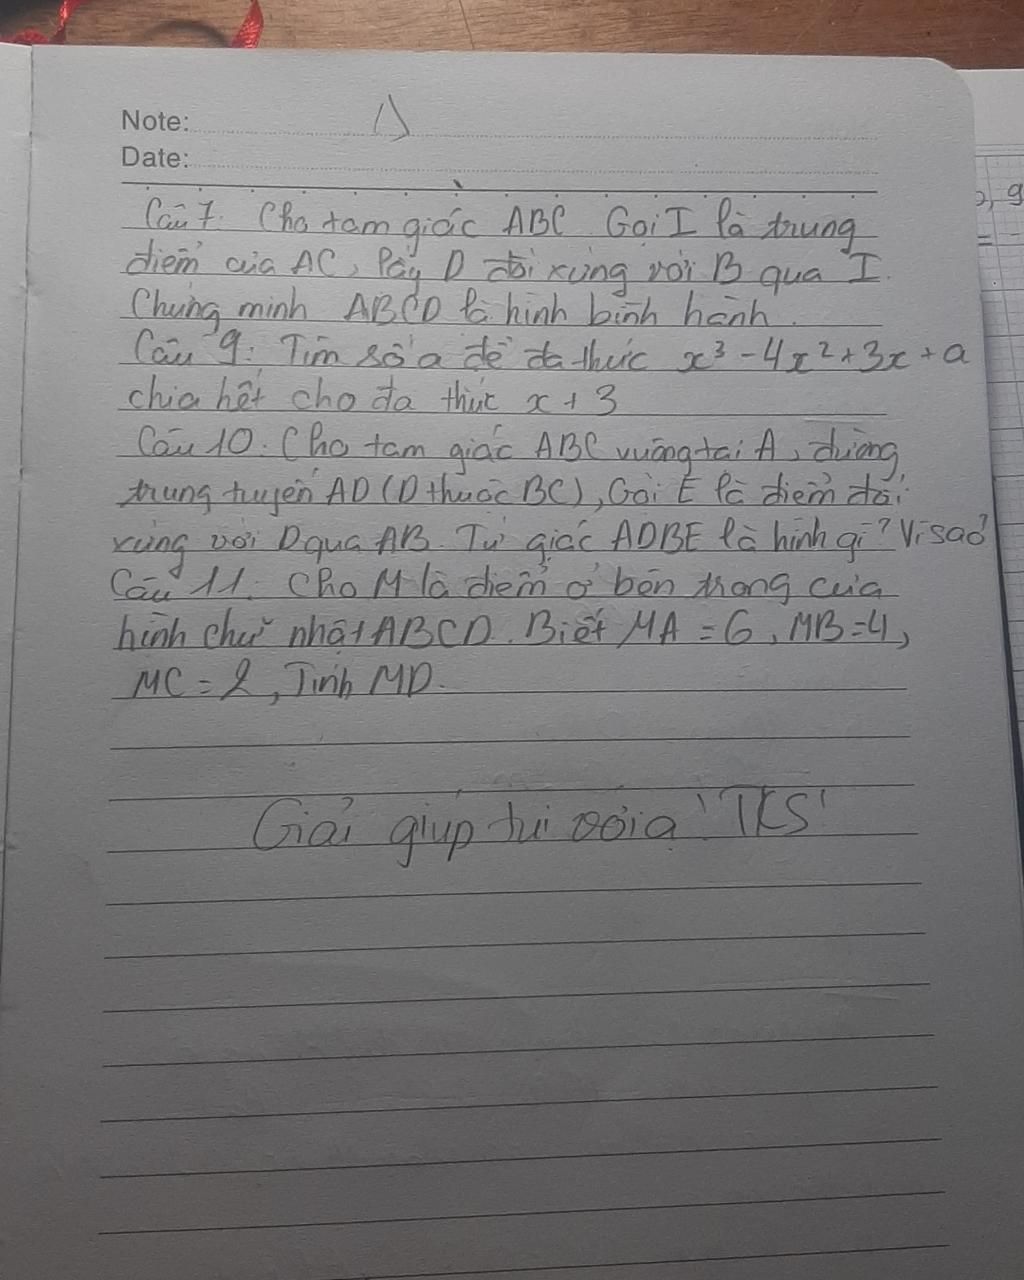 Note:
Date:
Câu 7. Cho tam giác ABC. Gọi I là trung
điểm của AC, lấy D đối xứng với B qua I.
Chứng minh ABCD là hình bình hành.
Câu 9: Tìm số a để đa thức x³ - 4x² + 3x + a
chia hết cho đa thức x + 3
Câu 10. Cho tam giác ABC vuông tại A, đường
trung tuyến AD (D thuộc BC), Gọi E là điểm đối
xứng với D qua AB. Tứ giác ADBE là hình gì? Vì sao?
Câu 11: Cho M là điểm ở bên trong của
hình chữ nhật ABCD. Biết MA = 6, MB = 4,
MC = 2, Tính MD.
Giải giúp tui với ạ 'TKS'